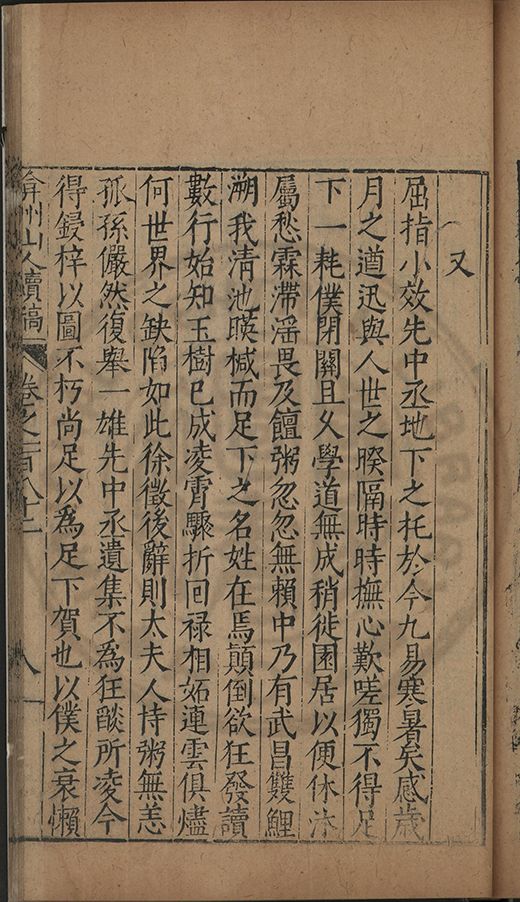 又
屈指小效先中丞地下之托於今九易寒暑矣感歲
月之遒迅與人世之暌隔時時撫心歎嗟獨不得足
下一耗僕閉關且乆學道無成稍徙園居以便休沐
屬愁霖滯滛畏及饘粥忽忽無賴中乃有武昌雙鯉
溯我清池暎椷而足下之名姓在焉顛倒欲狂發讀
數行始知玉樹已成凌霄驟折囘禄相妬連雲俱燼
何世界之缺陷如此徐徵後辭則太夫人持粥無恙
孤孫儼然復舉一雄先中丞遺集不為狂燄所凌今
得鋟梓以圖不朽尚足以為足下賀也以僕之衰懶
弇州山人續稿 卷之一百八十二 八